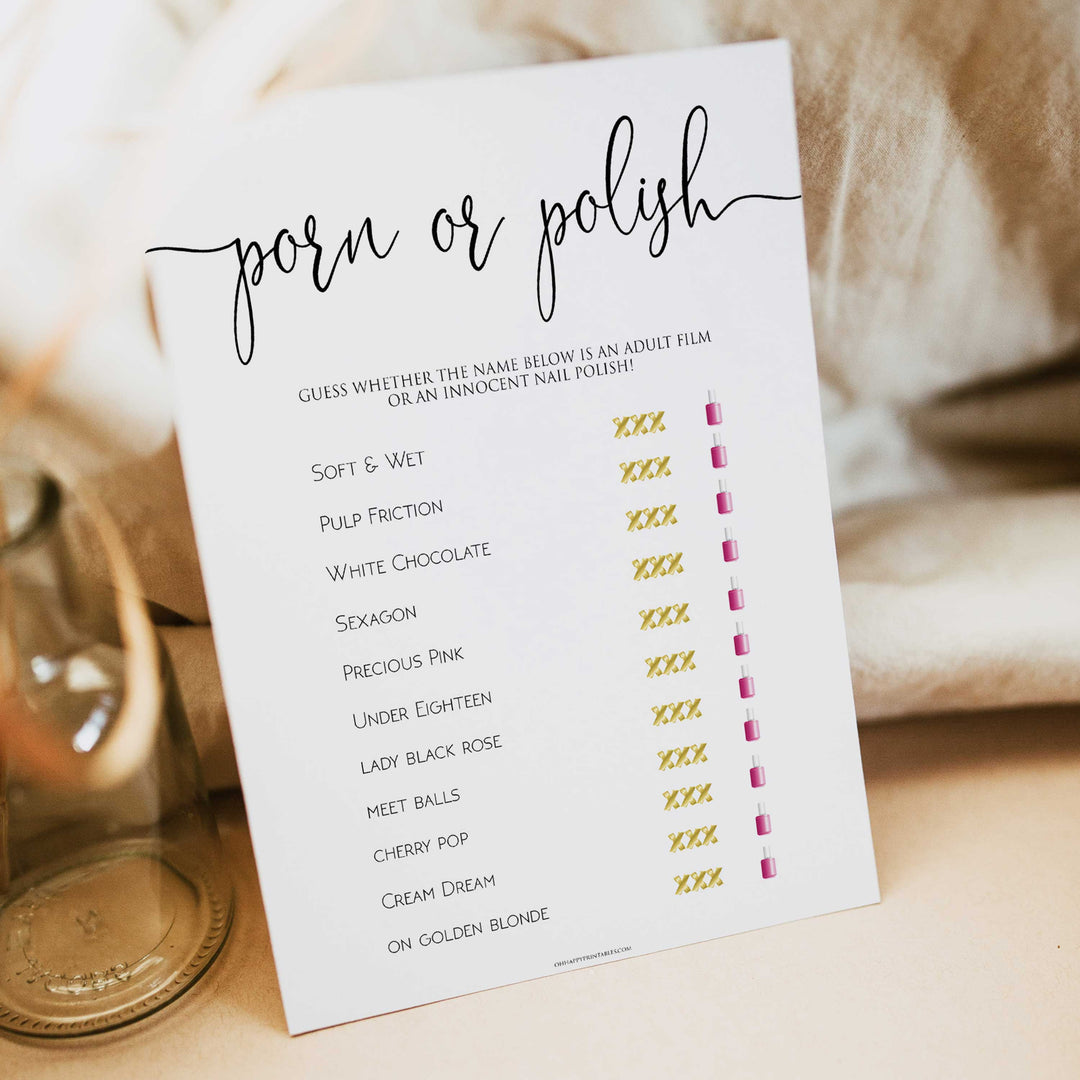 porn or polish
GUESS WHETHER THE NAME BELOW IS AN ADULT FILM
OR AN INNOCENT NAIL POLISH!
SOFT & WET
XXX
PULP FRICTION
XXX
WHITE CHOCOLATE
XXX
SEXAGON
XXX
PRECIOUS PINK
XXX
UNDER EIGHTEEN
XXX
LADY BLACK ROSE
XXX
MEET BALLS
XXX
CHERRY POP
XXX
CREAM DREAM
XXX
ON GOLDEN BLONDE
XXX
OHHAPPYPRINTABLES.COM